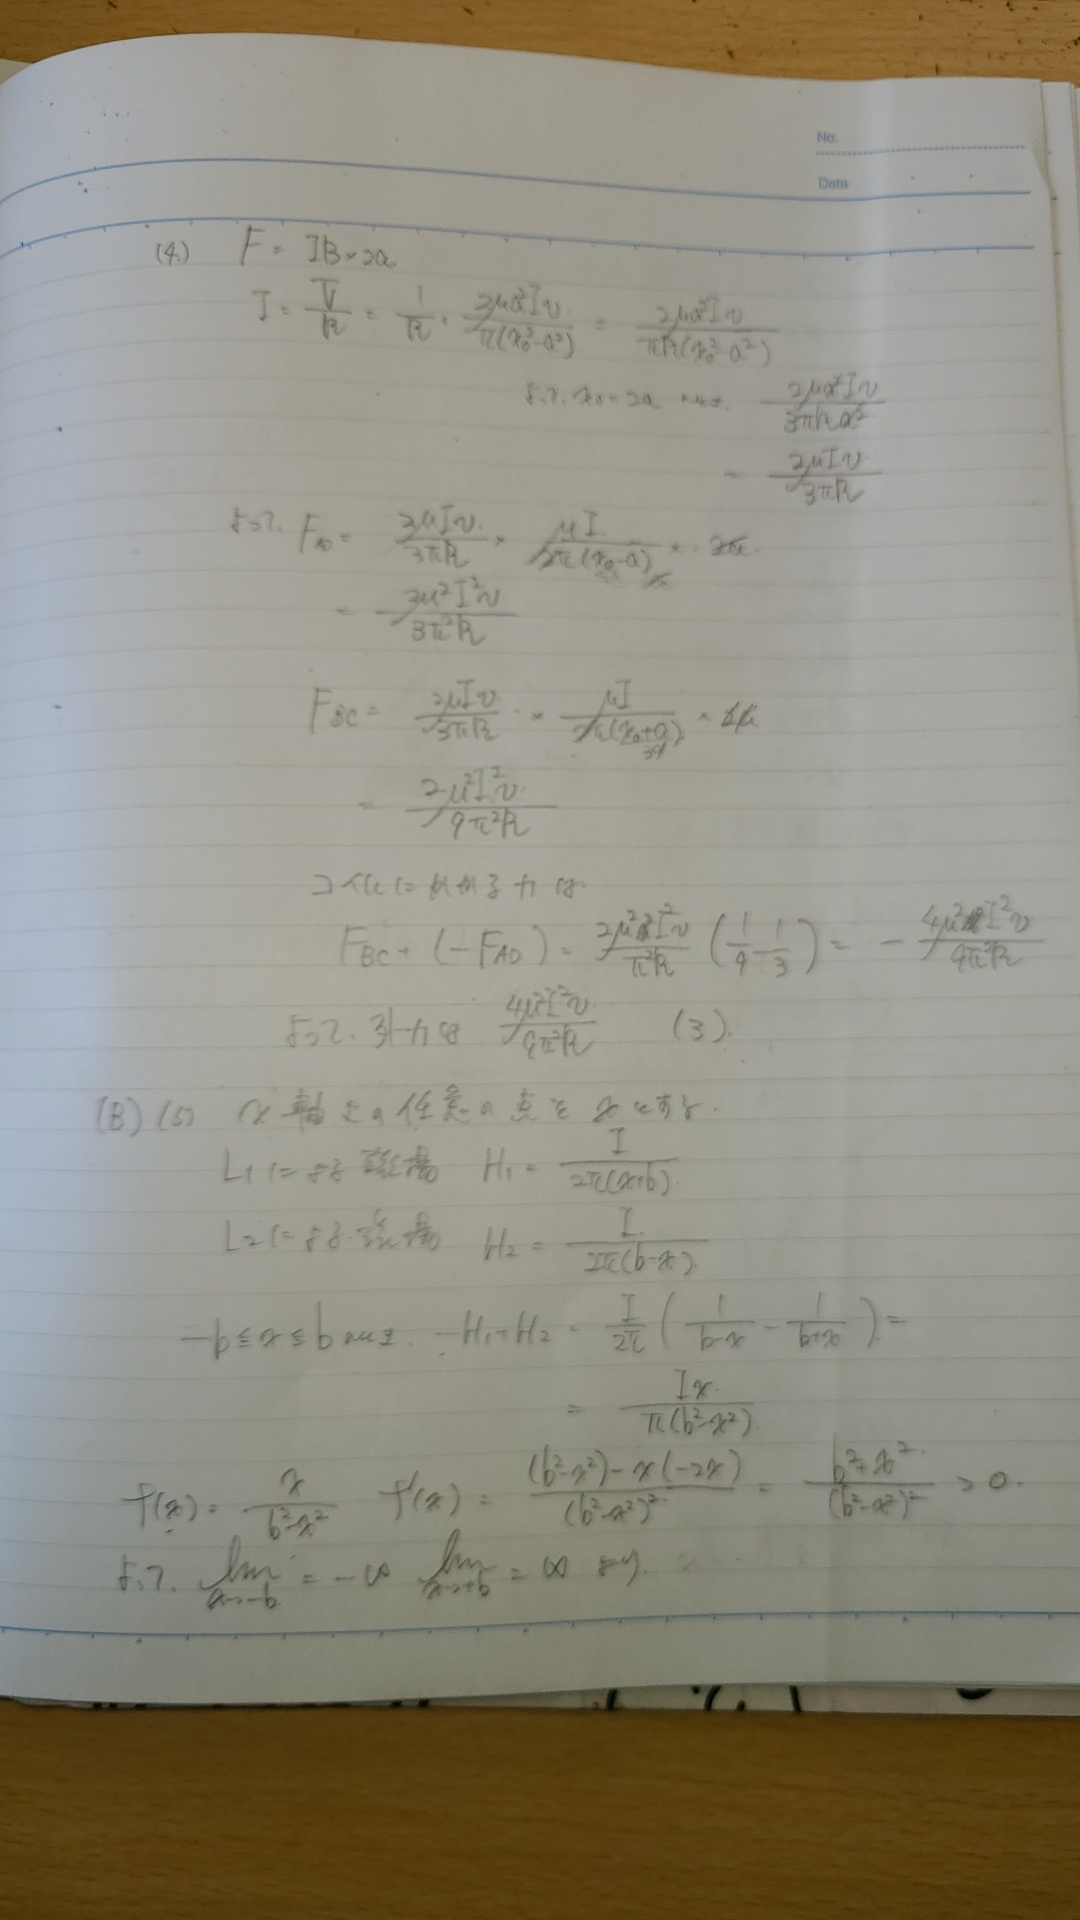 No.
Date
(4) F = IB × 2a
I = V/R = 1/R · 2μa²Iv/π(x₀²-a²) = 2μa²Iv/πR(x₀²-a²)
よって x₀=2a 2μa²Iv/3πRa²
= 2μIv/3πR
よって. F_AD = 2μIv/3πR × μI/2π(x₀-a) × 2a
= 2μ²I²v/3π²R
F_BC = 2μIv/3πR × μI/2π(x₀+a) × 2a
3a
= 2μ²I²v/9π²R
コイルにはたらく力は
F_BC + (-F_AD) = 2μ²I²v/π²R (1/9 - 1/3) = - 4μ²I²v/9π²R
よって. 引力は 4μ²I²v/9π²R (3).
(B) (5) x軸上の任意の点をxとする.
L1による磁場 H₁ = I/2π(x+b)
L2による磁場 H₂ = I/2π(b-x)
-b≦x≦b -H₁+H₂ = I/2π (1/b-x - 1/b+x) =
= Ix/π(b²-x²)
f(x) = x/b²-x² f'(x) = (b²-x²)-x(-2x)/(b²-x²)² = b²+x²/(b²-x²)² > 0.
よって. lim x→-b = -∞ lim x→+b = ∞ より.